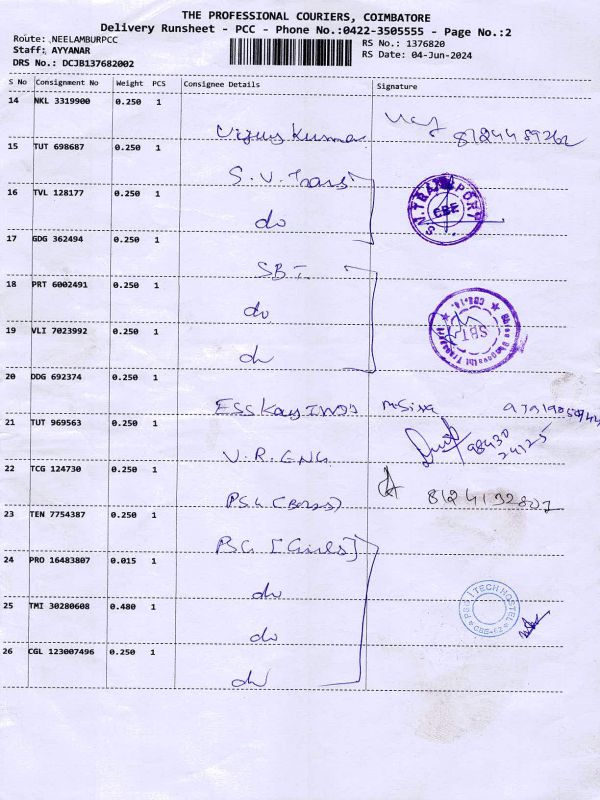 THE PROFESSIONAL COURIERS, COIMBATORE
Delivery Runsheet - PCC - Phone No.:0422-3505555 - Page No.:2
Route: .NEELAMBURPCC
Staff: AYYANAR
DRS No.: DCJB137682002
RS No.: 1376820
RS Date: 04-Jun-2024
S No Consignment No Weight PCS Consignee Details Signature
14 NKL 3319900 0.250 1
Vijay Kumar
15 TUT 698687 0.250 1
S.V. Trans
16 TVL 128177 0.250 1
do
S.V.TRANSPORT
CBE
17 GDG 362494 0.250 1
SBT
18 PRT 6002491 0.250 1
do
19 VLI 7023992 0.250 1
do
SBT
CBE-14.
20 DDG 692374 0.250 1
ESSKay INDS
21 TUT 969563 0.250 1
98430
24125
V.R. ENG
22 TCG 124730 0.250 1
PSG (Boys)
8124132807
23 TEN 7754387 0.250 1
PSG [Girls]
24 PRO 16483807 0.015 1
do
25 TMI 30280608 0.480 1
do
PSG I TECH HOSTEL
CBE-62
26 CGL 123007496 0.250 1
do